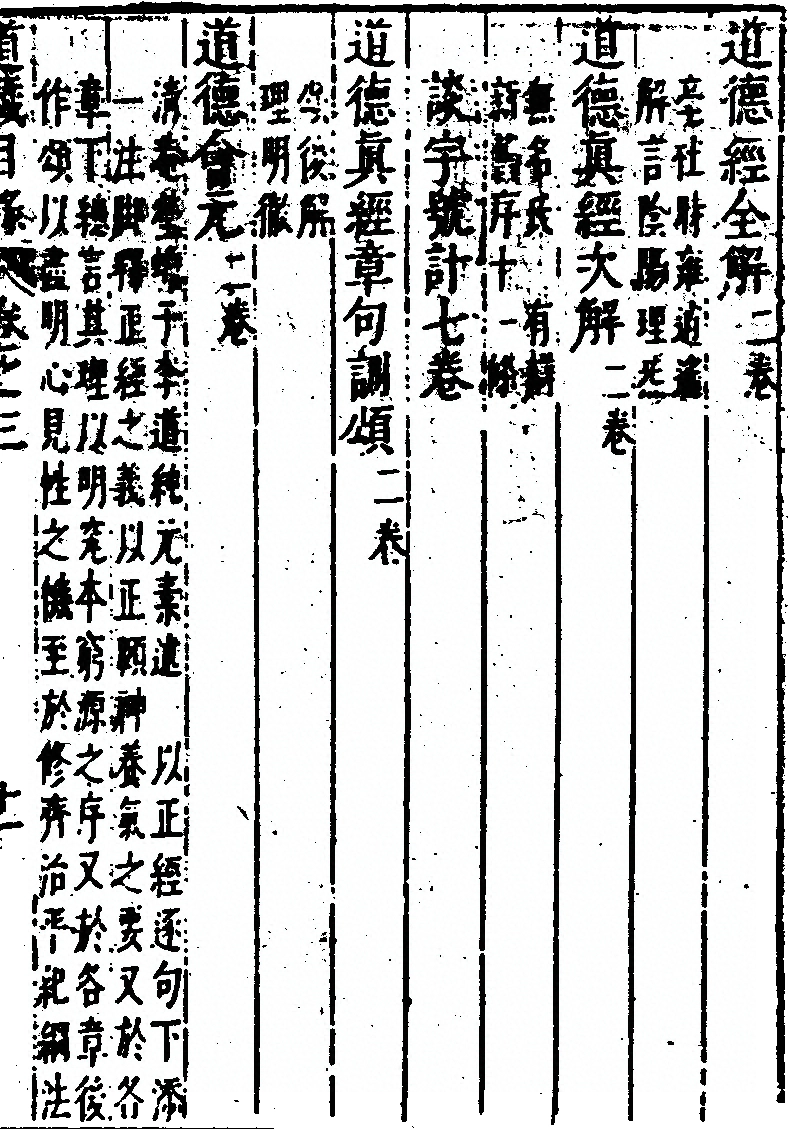 道德經全解二卷
社時雍逍遙
解言陰陽理炁
道德眞經次解二卷
無名氏 有
序十一條
談字號計七卷
道德眞經章句訓頌二卷
後解
理明徹
道德會元二卷
清菴瑩蟾子李道純元素述 以正經逐句下添
一注脚釋正經之義以正頤神養氣之要又於各
章下總言其理以明究本窮源之序又於各章後
作頌以盡明心見性之機至於修齊治平紀綱法
道藏目錄 卷之三 十一